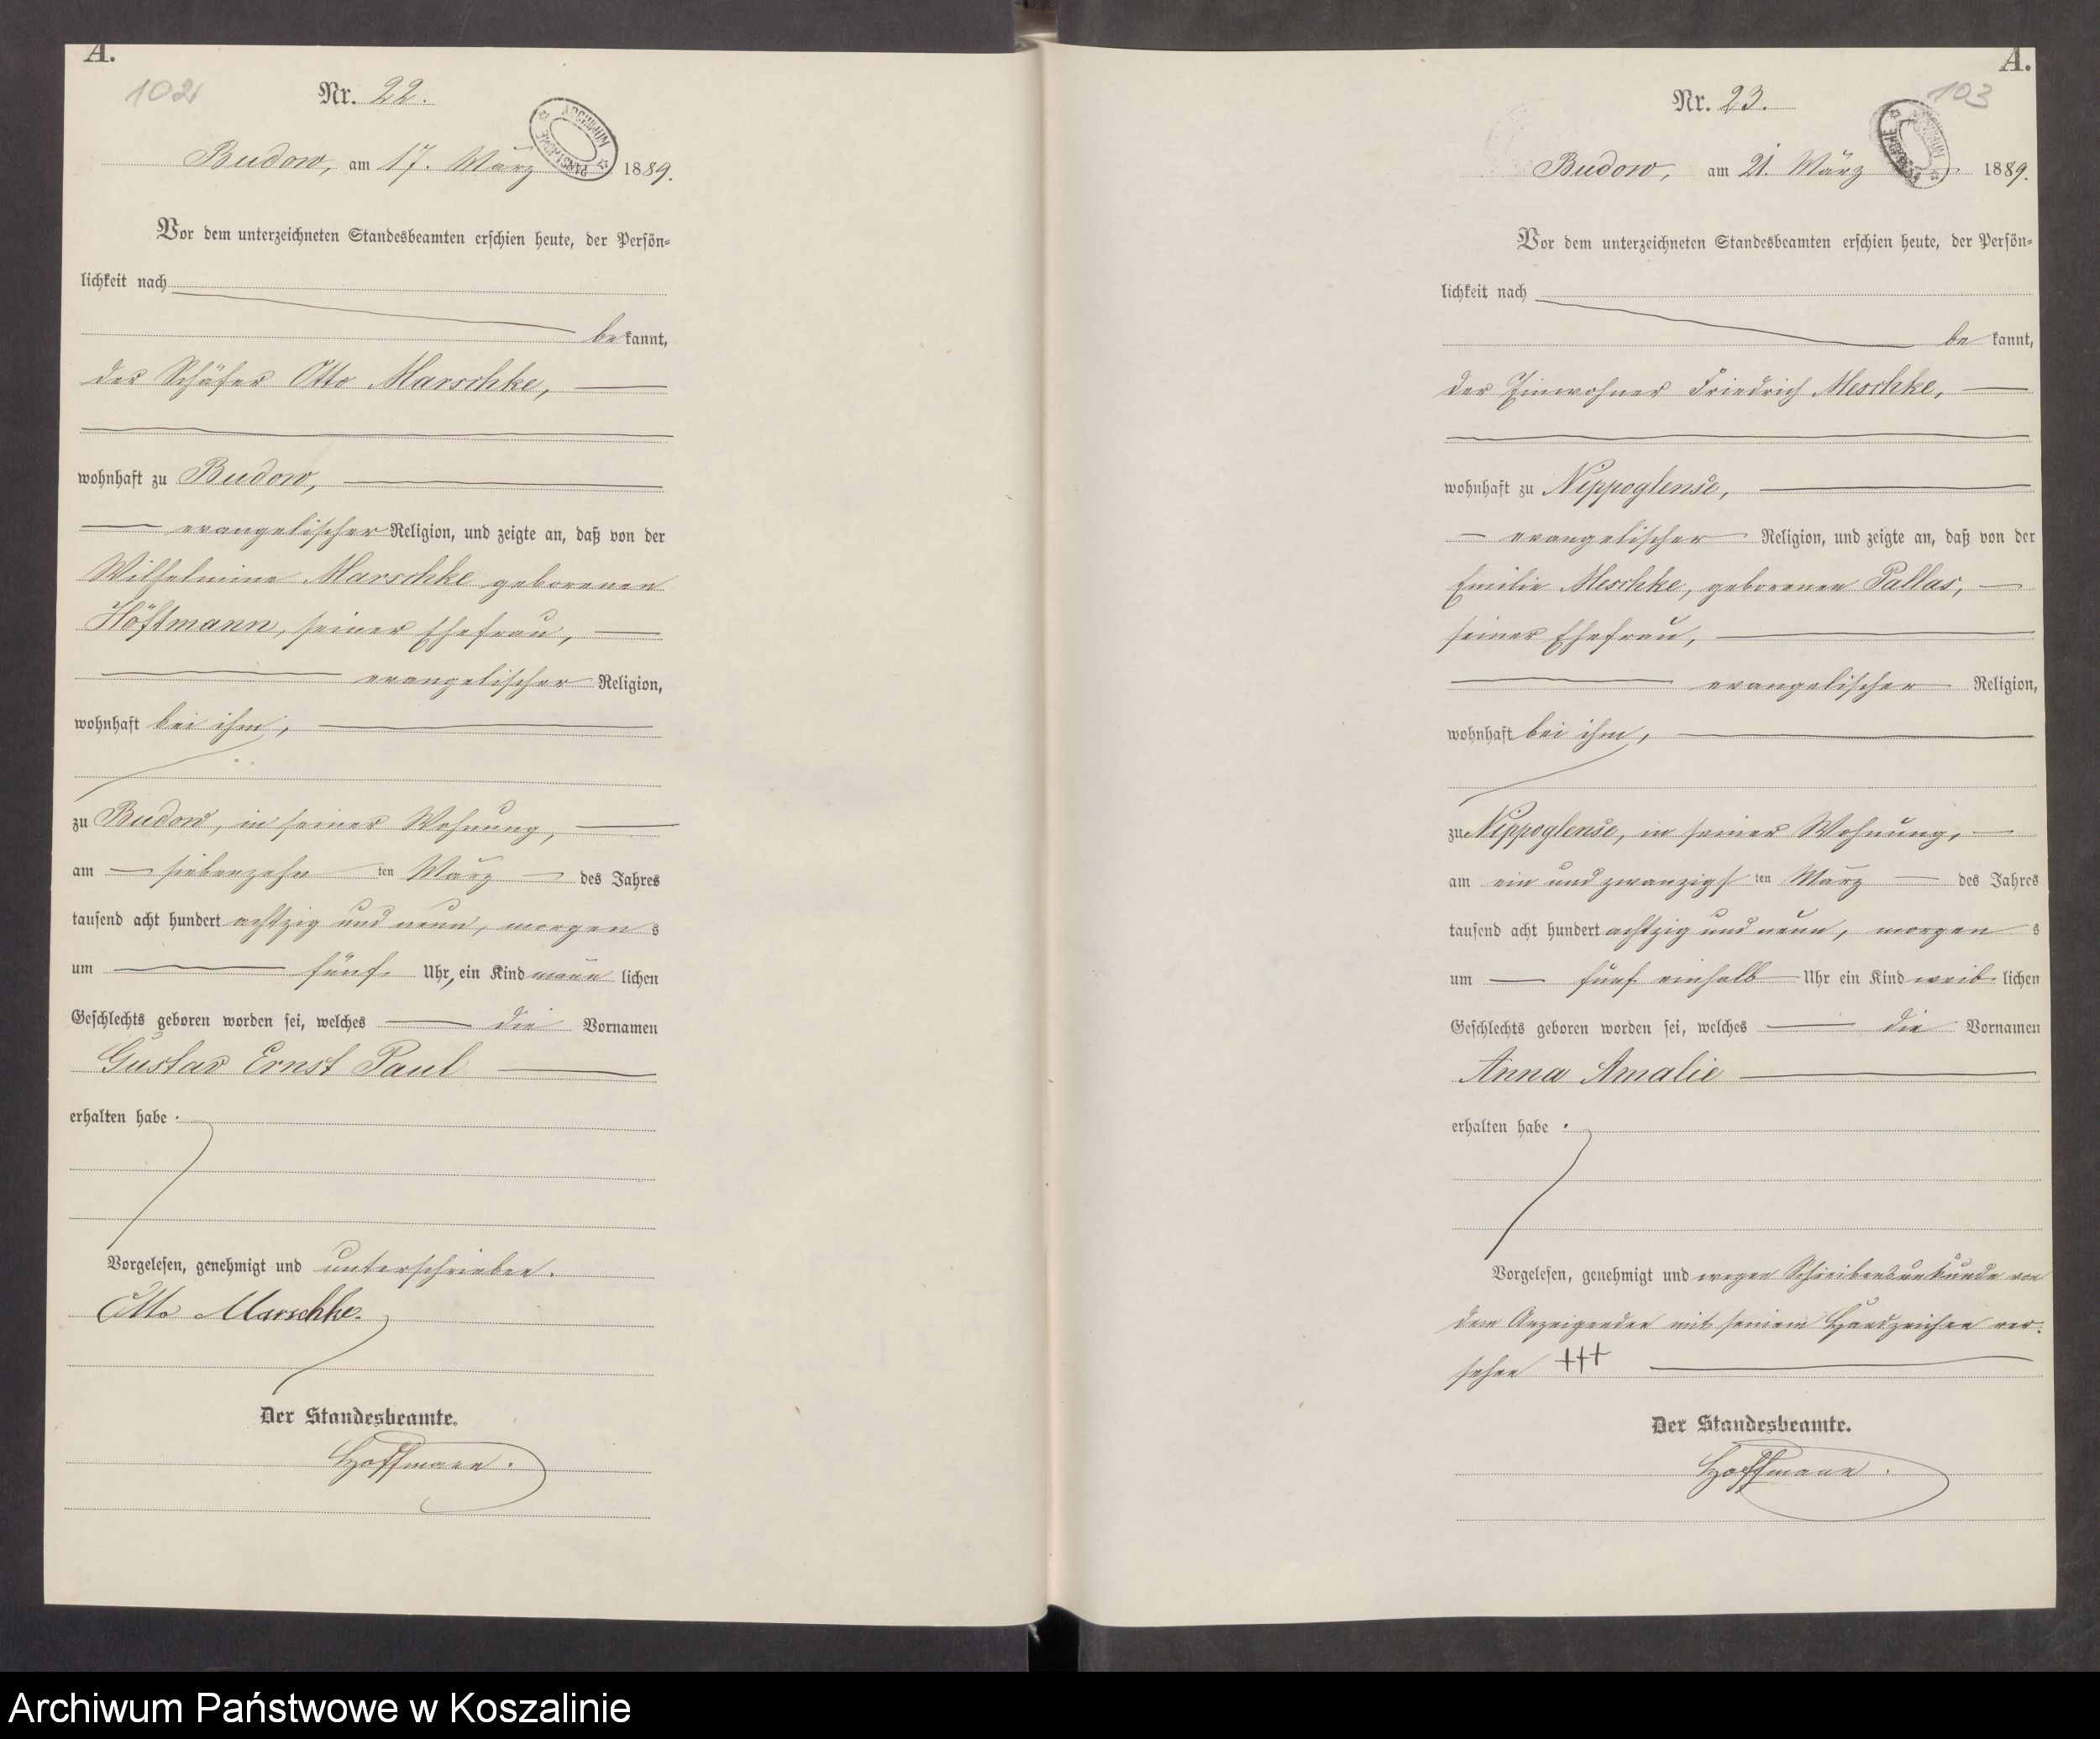 A.
102
Nr. 22.
ARCHIWUM PAŃSTWOWE
Budow, am 17. März 1889.
Vor dem unterzeichneten Standesbeamten erschien heute, der Persön=
lichkeit nach
be kannt,
der Schäfer Otto Marschke,
wohnhaft zu Budow,
evangelischer Religion, und zeigte an, daß von der
Wilhelmine Marschke geborenen
Höftmann, seiner Ehefrau,
evangelischer Religion,
wohnhaft bei ihm,
zu Budow, in seiner Wohnung,
am siebenzehn ten März des Jahres
tausend acht hundert achtzig und neun, morgen s
um fünf Uhr, ein Kind männ lichen
Geschlechts geboren worden sei, welches die Vornamen
Gustav Ernst Paul
erhalten habe.
Vorgelesen, genehmigt und unterschrieben.
Otto Marschke.
Der Standesbeamte.
Hoffmann.
A.
103
Nr. 23.
ARCHIWUM PAŃSTWOWE
Budow, am 21. März 1889.
Vor dem unterzeichneten Standesbeamten erschien heute, der Persön=
lichkeit nach
be kannt,
der Einwohner Friedrich Meschke,
wohnhaft zu Nippoglense,
evangelischer Religion, und zeigte an, daß von der
Emilie Meschke, geborenen Pallas,
seiner Ehefrau,
evangelischer Religion,
wohnhaft bei ihm,
zu Nippoglense, in seiner Wohnung,
am ein und zwanzigs ten März des Jahres
tausend acht hundert achtzig und neun, morgen s
um fünf einhalb Uhr ein Kind weib lichen
Geschlechts geboren worden sei, welches die Vornamen
Anna Amalie
erhalten habe.
Vorgelesen, genehmigt und wegen Schreibensunkunde von
dem Anzeigenden mit seinem Handzeichen ver-
sehen +++
Der Standesbeamte.
Hoffmann.
Archiwum Państwowe w Koszalinie